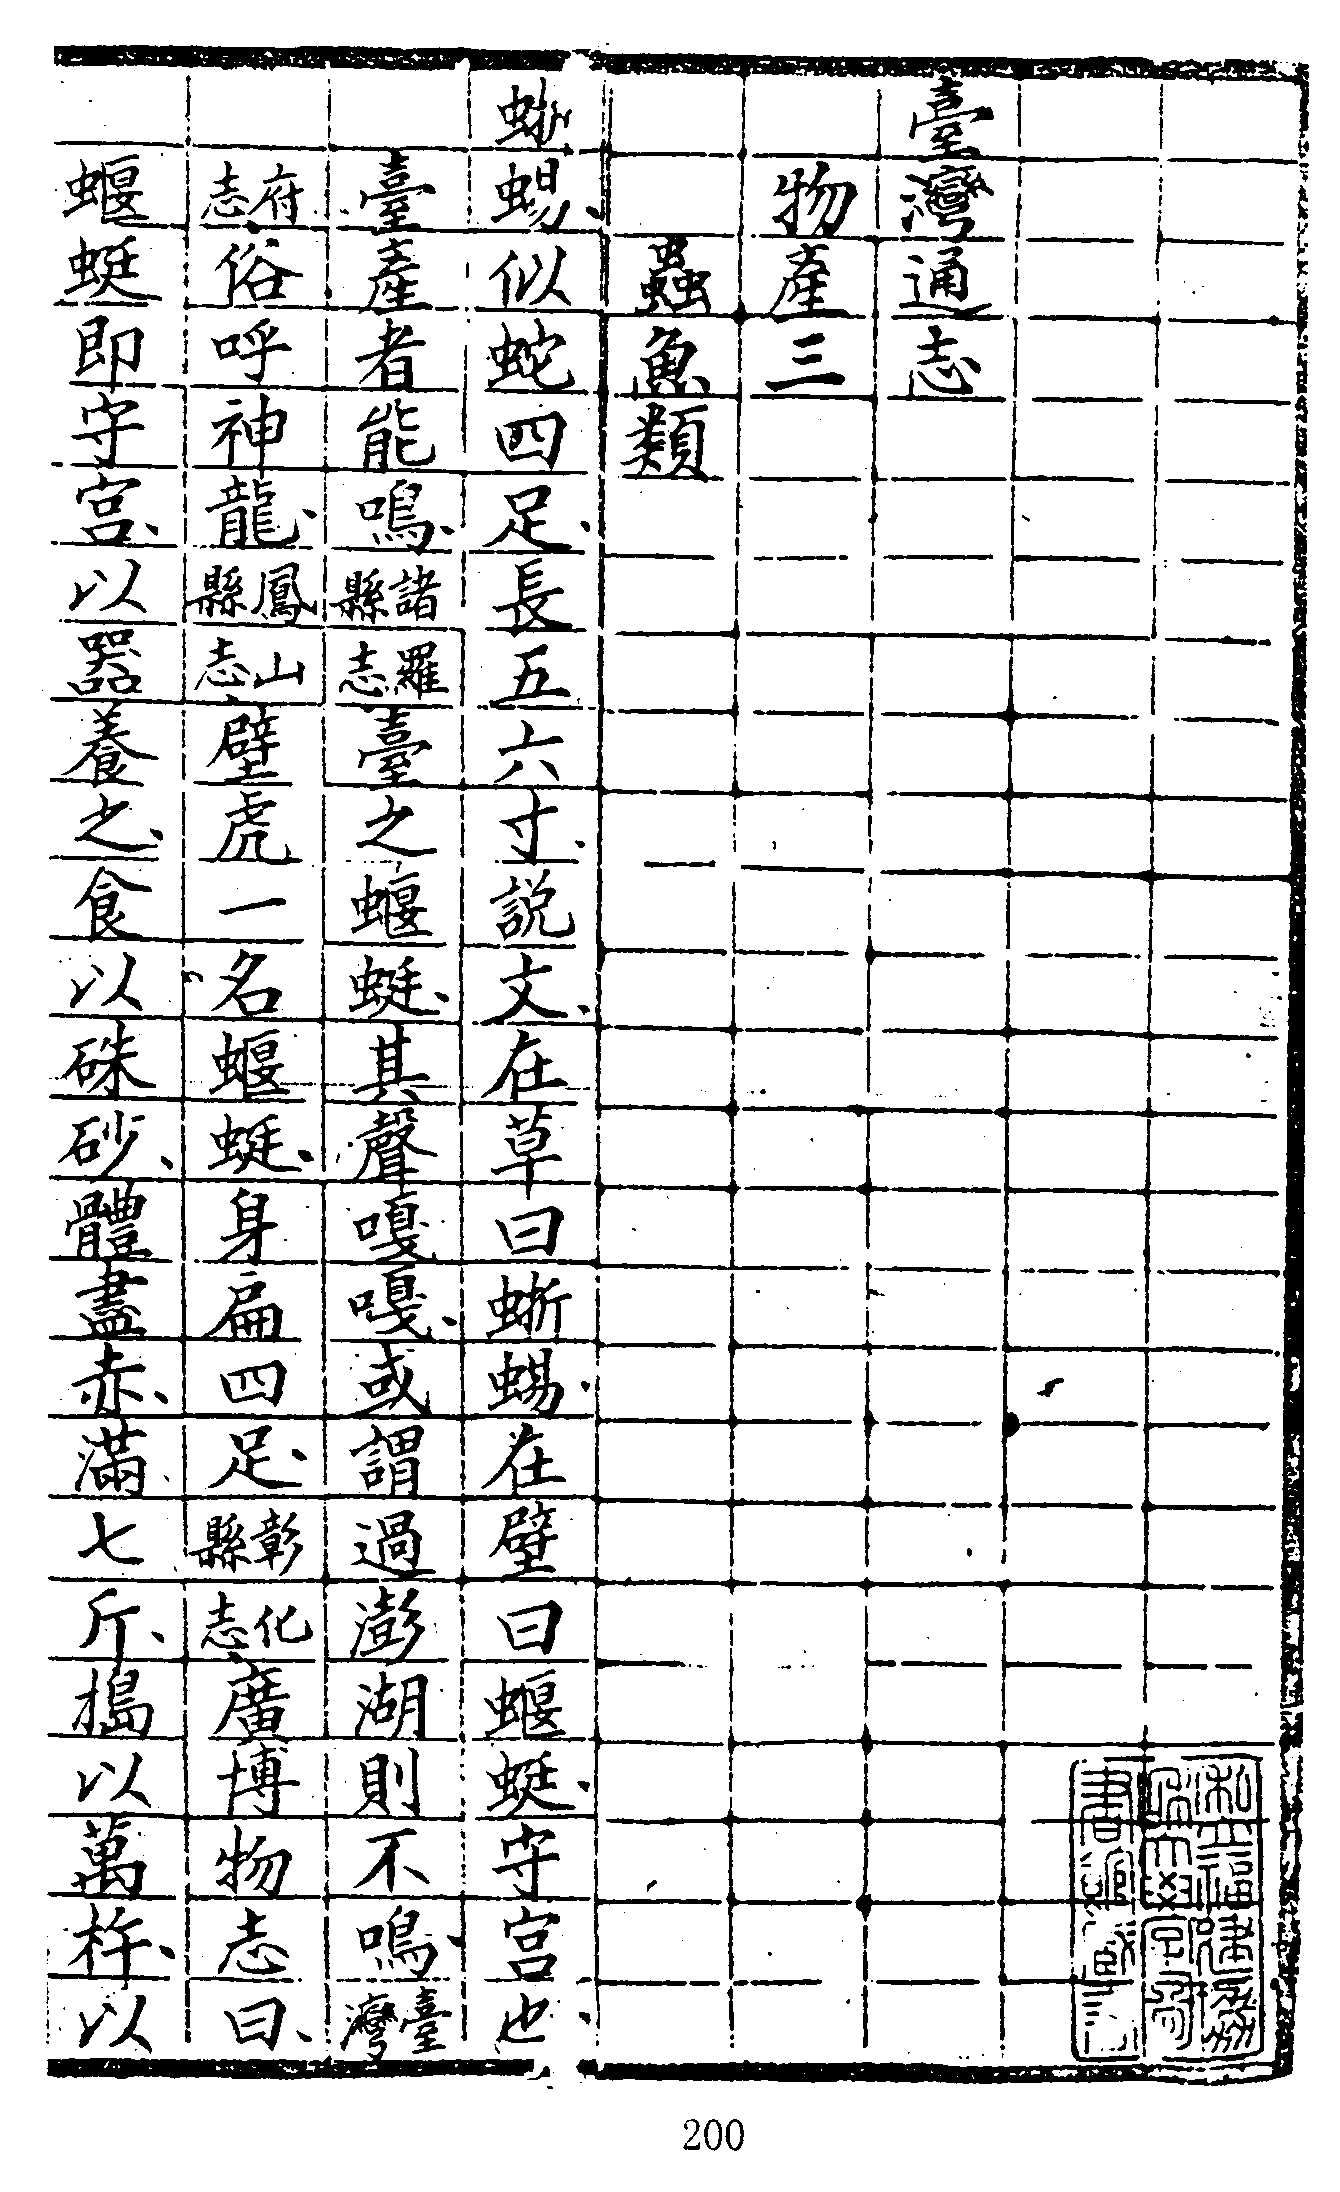 臺灣通志
物產三
蟲魚類
蜥蜴、似蛇四足、長五六寸、說文、在草曰蜥蜴、在壁曰蝘蜓、守宮也、
臺產者能鳴、諸羅縣志臺之蝘蜓、其聲嘎嘎、或謂過澎湖則不鳴、臺灣
府志俗呼神龍、鳳山縣志壁虎一名蝘蜓、身扁四足、彰化縣志廣博物志曰、
蝘蜓即守宮、以器養之、食以硃砂、體盡赤、滿七斤、搗以萬杵、以
200